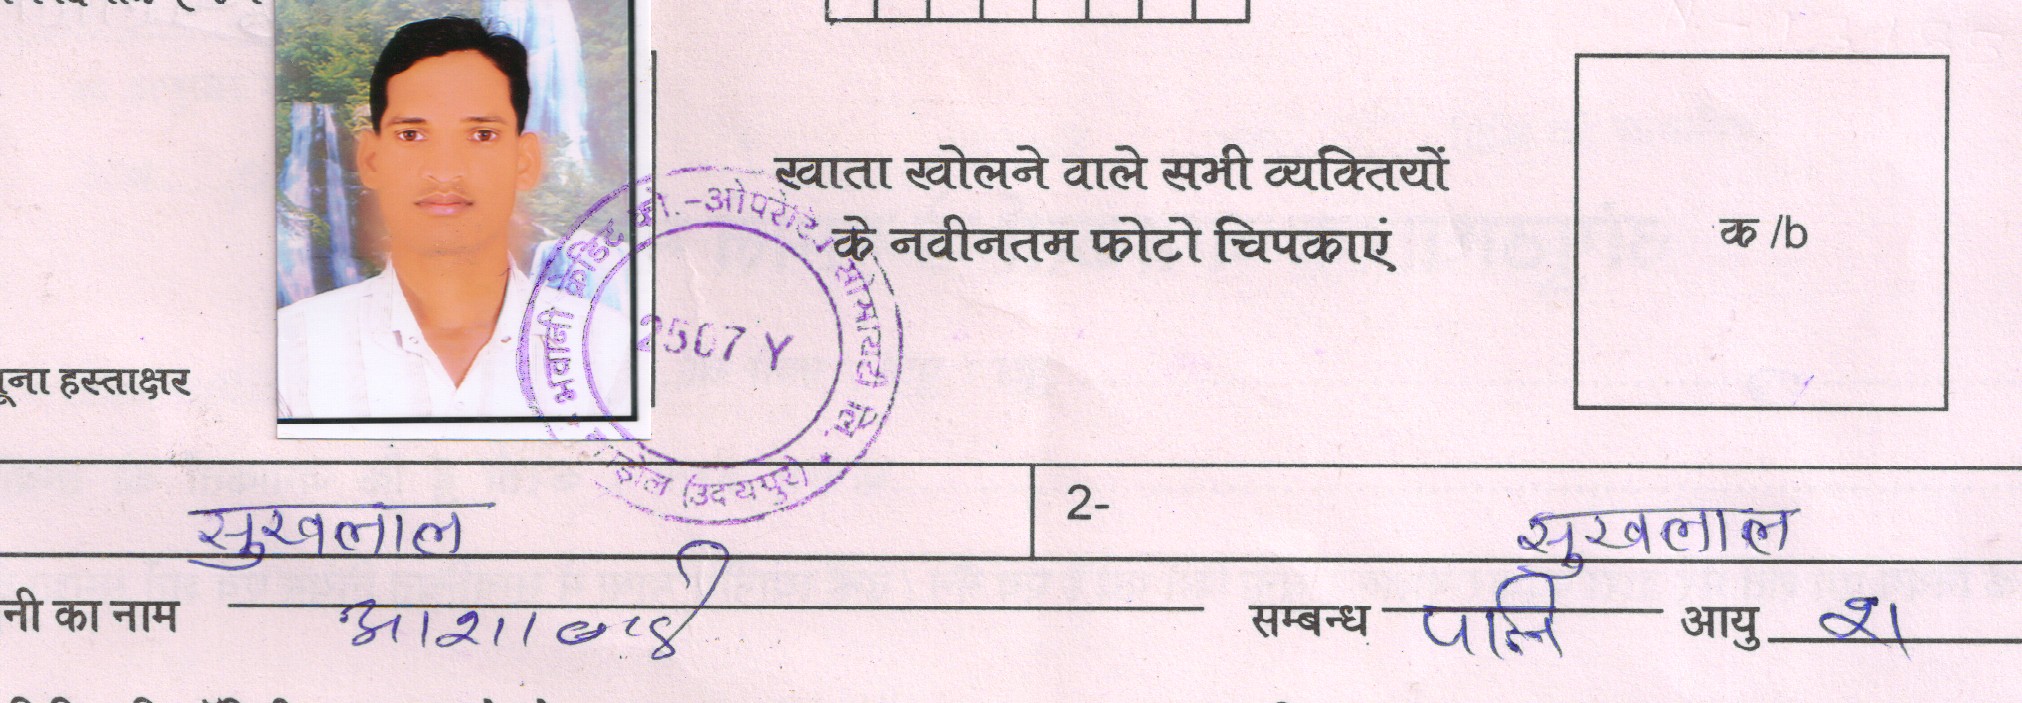 खाता खोलने वाले सभी व्यक्तियों
के नवीनतम फोटो चिपकाएं
क /b
भवानी क्रेडिट को.-ओपरेटिव सोसायटी लि.
(उदयपुर)
2507 Y
हस्ताक्षर
सुखलाल
2- सुखलाल
का नाम आशा बाई सम्बन्ध पत्नि आयु